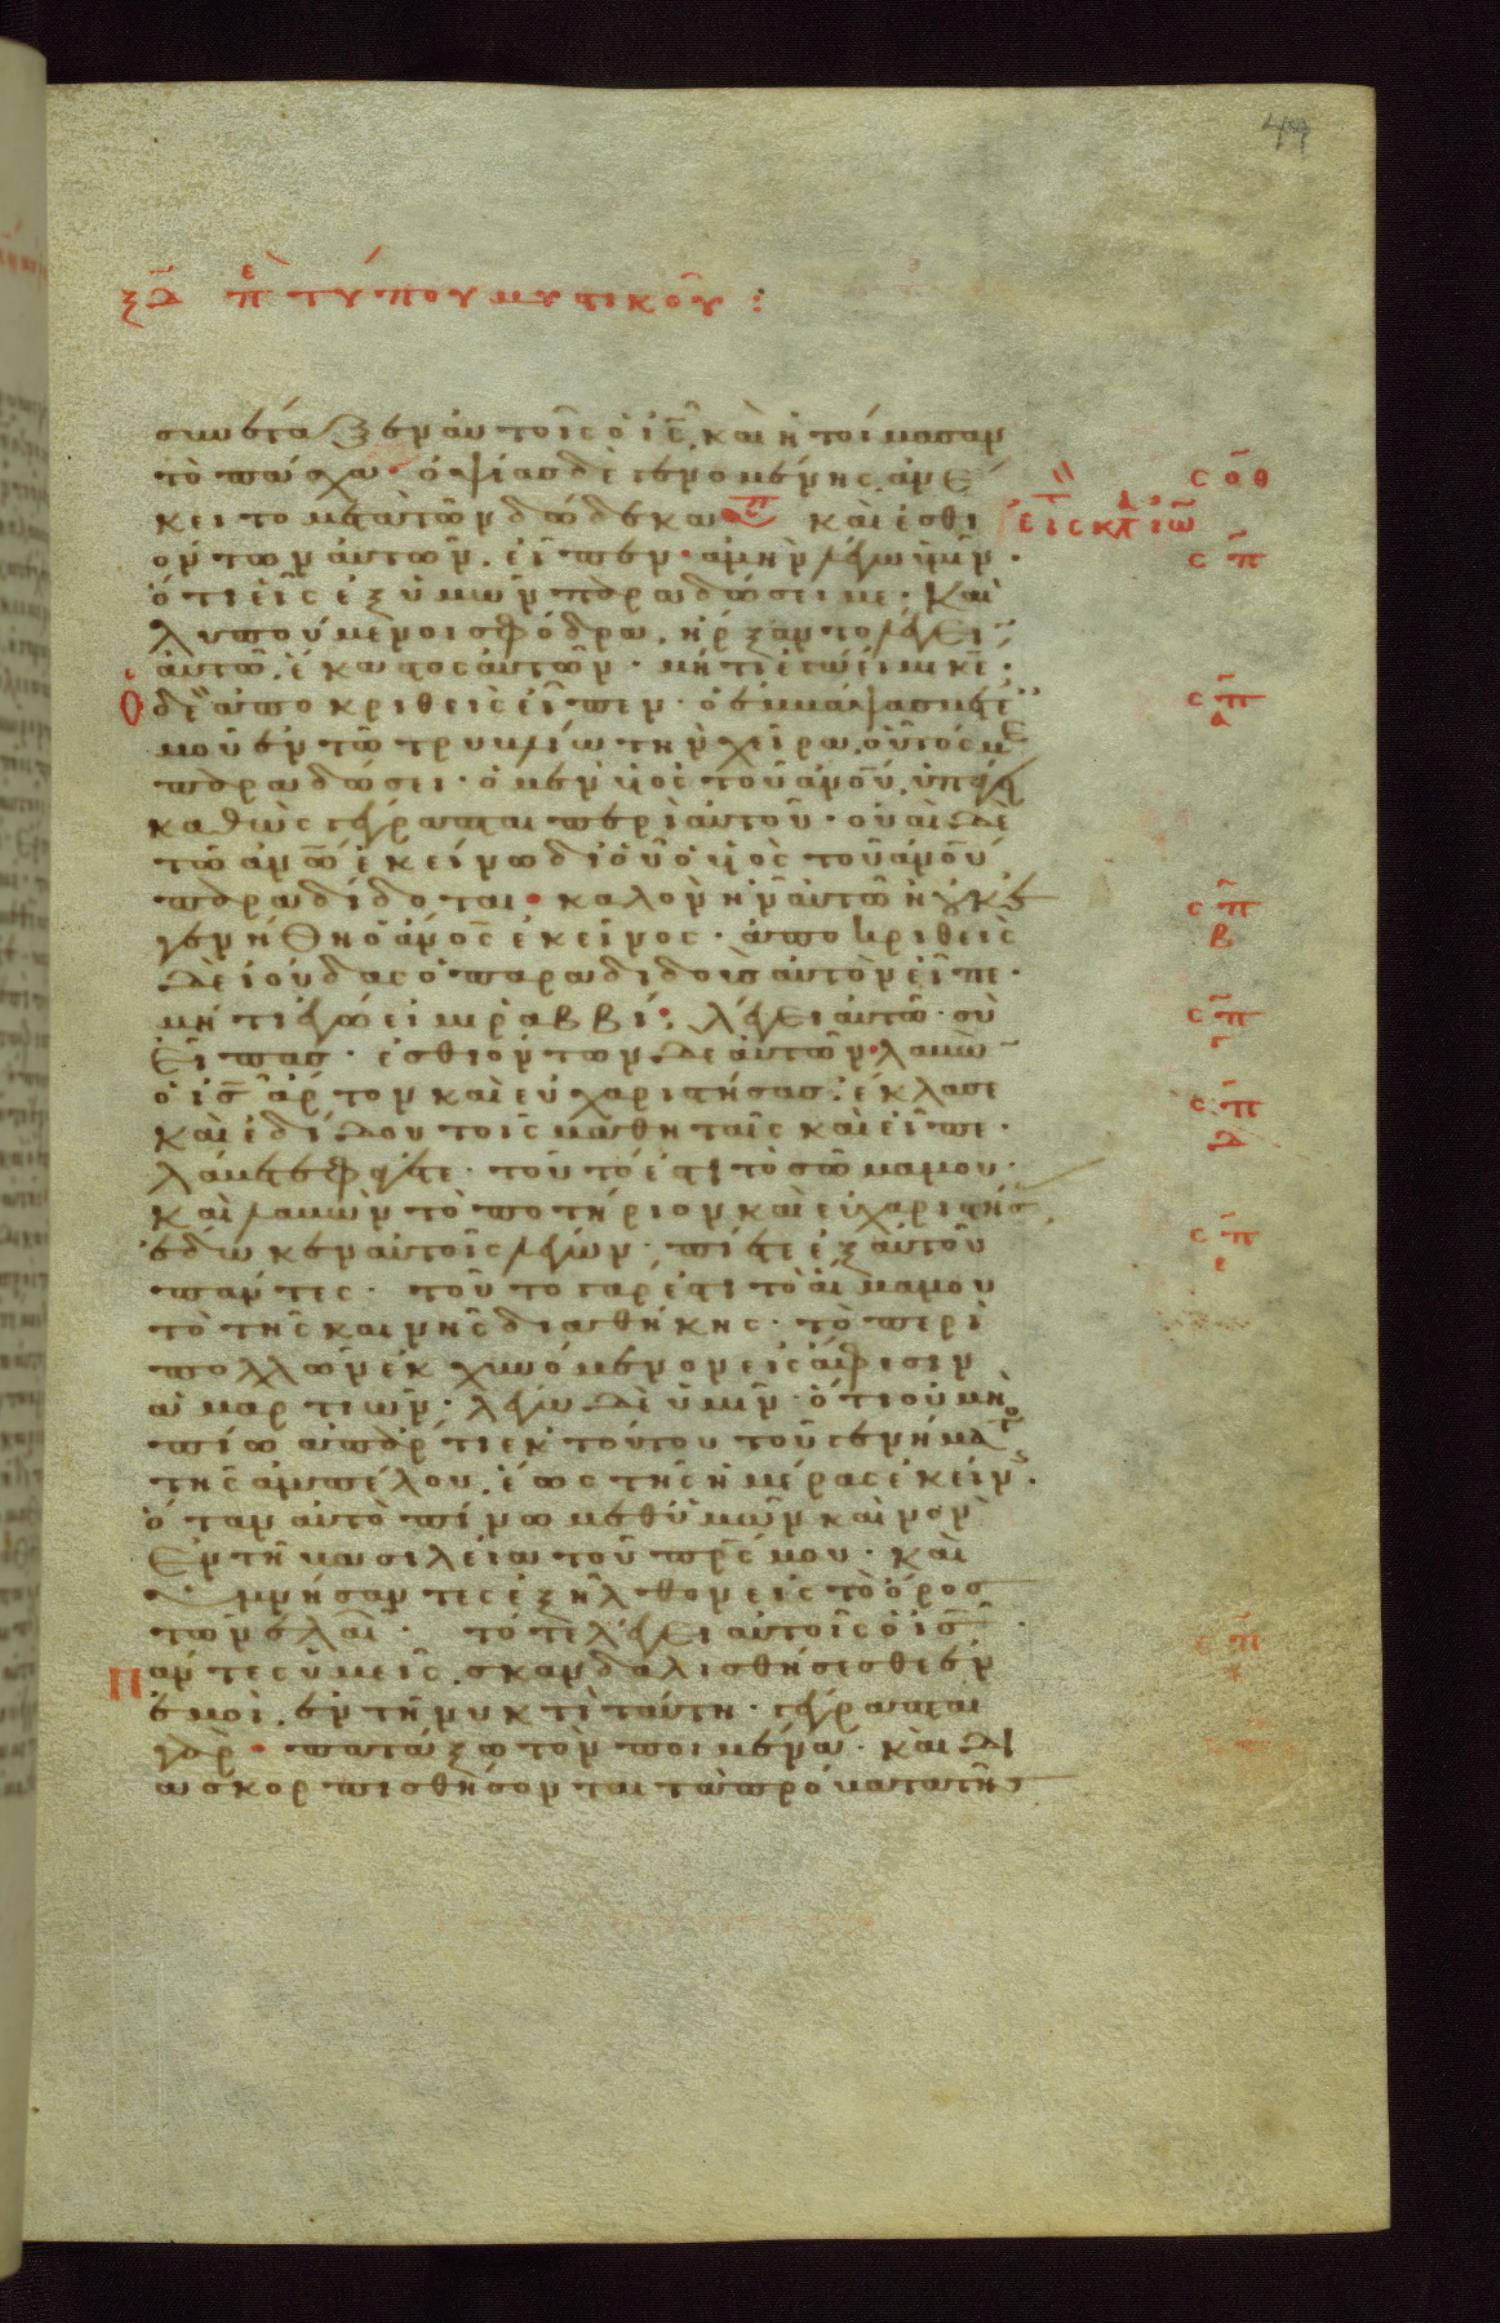 49
ξδ πε τύπου μυστικοῦ :
συνέταξεν αὐτοῖς ὁ ις καὶ ἡτοίμασαν
τὸ πάσχα· ὀψίας δὲ γενομένης ἀνέ
κειτο μετὰ τῶν δώδεκα καὶ ἐσθι
όντων αὐτῶν. εἶπεν· ἀμὴν λέγω ὑμῖν·
ὅτι εἷς ἐξ ὑμῶν παραδώσει με· καὶ
λυπούμενοι σφόδρα. ἤρξαντο λέγειν
αὐτῶ. ἕκαστος αὐτῶν· μήτι ἐγώ εἰμι κε·
Ὁ δὲ ἀποκριθεὶς εἶπεν· ὁ ἐμβάψας μετ'
ἐμοῦ ἐν τῶ τρυβλίω τὴν χεῖρα. οὗτός με
παραδώσει· ὁ μὲν υἱὸς τοῦ ανου. ὑπάγει
καθὼς γέγραπται περὶ αὐτοῦ· οὐαὶ δὲ
τῶ ανω ἐκείνω δι' οὗ ὁ υἱὸς τοῦ ανου
παραδίδοται· καλὸν ἦν αὐτῶ εἰ οὐκ ἐ
γεννήθη ὁ ανος ἐκεῖνος· ἀποκριθεὶς
δὲ ἰούδας ὁ παραδιδοὺς αὐτὸν εἶπε·
μήτι ἐγώ εἰμι ραββί· λέγει αὐτῶ· σὺ
εἶπας· ἐσθιόντων δὲ αὐτῶν· λαβὼν
ὁ ις ἄρτον καὶ εὐχαριστήσας. ἔκλασε
καὶ ἐδίδου τοῖς μαθηταῖς καὶ εἶπε·
λάβετε φάγετε· τοῦτό ἐστι τὸ σῶμα μου·
καὶ λαβὼν τὸ ποτήριον καὶ εὐχαριστήσας,
ἔδωκεν αὐτοῖς λέγων· πίετε ἐξ αὐτοῦ
πάντες· τοῦτο γάρ ἐστι τὸ αἷμα μου
τὸ τῆς καινῆς διαθήκης· τὸ περὶ
πολλῶν ἐκχυνόμενον εἰς ἄφεσιν
ἁμαρτιῶν· λέγω δὲ ὑμῖν· ὅτι οὐ μὴ
πίω ἀπάρτι ἐκ τούτου τοῦ γενήματος
τῆς ἀμπέλου. ἕως τῆς ἡμέρας ἐκείνης·
ὅταν αὐτὸ πίνω μεθ' ὑμῶν καινὸν
ἐν τῆ βασιλεία τοῦ πρς μου· καὶ
ὑμνήσαντες ἐξῆλθον εἰς τὸ ὄρος
τῶν ἐλαιῶν· τότε λέγει αὐτοῖς ὁ ις·
Πάντες ὑμεῖς. σκανδαλισθήσεσθε ἐν
ἐμοὶ. ἐν τῆ νυκτὶ ταύτη· γέγραπται
γάρ· πατάξω τὸν ποιμένα· καὶ δι
ασκορπισθήσονται τὰ πρόβατα τῆς
σοθ
σπ
σπα
σπβ
σπγ
σπδ
σπε